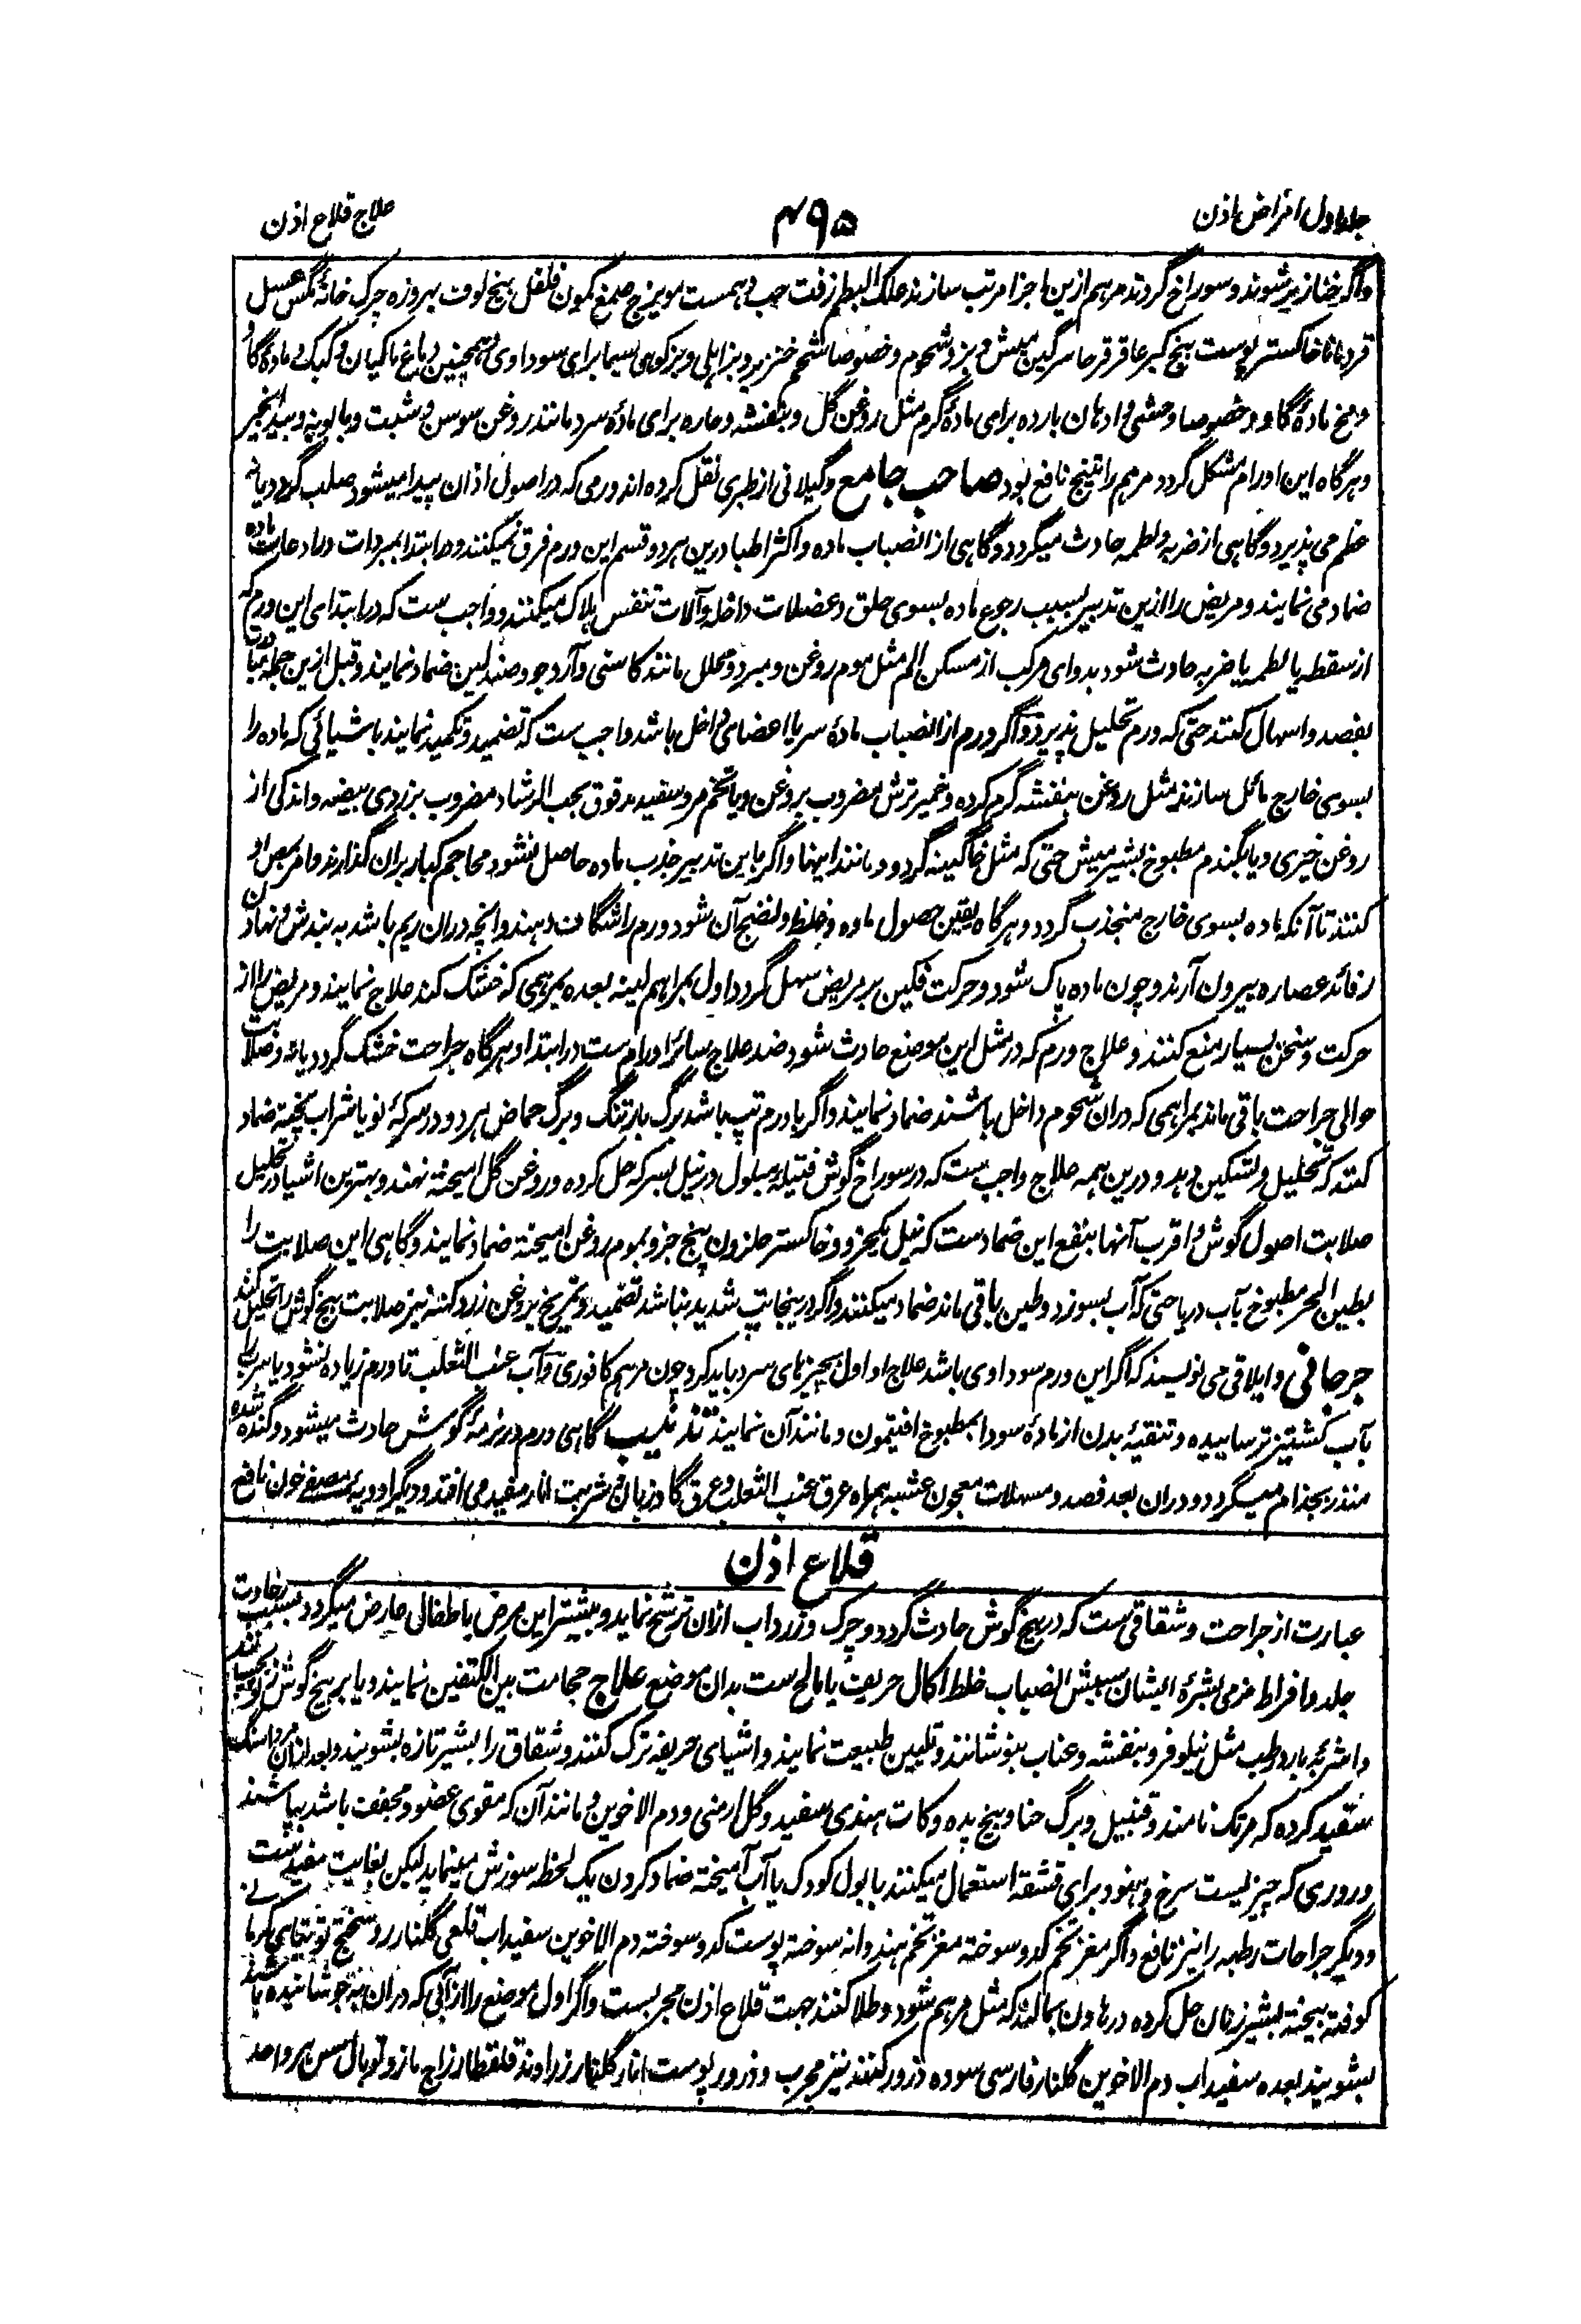 جلد اول امراض اذن
۴۹۵
علاج قلاع اذن
واگر خنازیر شوند و سوراخ گردند مرهم ازین اجزا مرتب سازند علک البطم زفت حب دهمست مویزج صمغ کمون فلفل بیخ لوف بیروزه چرک خانهٔ مگس عسل
قردمانا خاکستر پوست بیخ کبر عاقرقرحا سرگین میش و بز و شحوم و خصوصا شحم خنزیر و بز اهلی و بز کوهی لاسیما برای سوداوی و همچنین دماغ ماکیان و کبک و مادهٔ گاؤ
و مخ مادهٔ گاو و خصوصا وحشی و ادهان بارده برای مادهٔ گرم مثل روغن گل و بنفشه و حاره برای مادهٔ سرد مانند روغن سوسن و شبت و بابونه و بیدانجیر
و هرگاه این اورام مشکل گردد مرهم راتینج نافع بود صاحب جامع و گیلانی از طبری نقل کرده اند ورمی که در اصول اذان پیدا میشود صلب گردد یا نه
عظم می پذیرد و گاهی از ضربه و لطمه حادث میگردد و گاهی از انصباب ماده و اکثر اطبا درین هر دو قسم این ورم فرق نمیکنند و در ابتدا بمبردات و رادعات ماده
ضماد می نمایند و مریض را ازین تدبیر بسبب رجوع ماده بسوی حلق و عضلات داخله و آلات تنفس هلاک میکنند و واجب ست که در ابتدای این ورم که
از سقطه یا لطمه یا ضربه حادث شود بدوای مرکب از مسکن الم مثل موم روغن و مبرد و محلل مانند کاسنی و آرد جو و صندلین ضماد نمایند و قبل ازین جمله
بفصد و اسهال کنند حتی که ورم تحلیل پذیرد و اگر ورم از انصباب مادهٔ سر یا اعضای داخل باشد واجب ست که تضمید و تکمید نمایند باشیائی که ماده را
بسوی خارج مائل سازند مثل روغن بنفشه گرم کرده و خمیر ترش مضروب بروغن و یا تخم مرو سفید مدقوق بحب الرشاد مضروب بزردی بیضه و اندکی از
روغن خیری و یا بگندم مطبوخ بشیر میش حتی که مثل خاگینه گردد و مانند اینها و اگر باین تدبیر جذب ماده حاصل نشود محاجم کبار بران گذارند و امر بمص او
کنند تا آنکه ماده بسوی خارج منجذب گردد و هرگاه یقین حصول ماده و غلظ و نضج آن شود ورم را شگاف دهند و انچه دران ریم باشد به بندش و نهادن
رفائد عصاره بیرون آرند و چون ماده پاک شود و حرکت فکین بر مریض سهل گردد اول بمراهم لینه بعده بمرهمی که خشک کند علاج نمایند و مریض را از
حرکت و سخن بسیار منع کنند و علاج ورم که در مثل این موضع حادث شود ضد علاج سائر اورام ست در ابتدا و هرگاه جراحت خشک گردد یا نه و صلابت
حوالی جراحت باقی ماند بمراهمی که دران شحوم داخل باشند ضماد نمایند و اگر با ورم تپ باشد برگ بارتنگ و برگ حماض هر دو در سرکهٔ نو یا شراب پخته ضماد
کنند که تحلیل و تسکین دهد و درین همه علاج واجب ست که در سوراخ گوش فتیله مبلول در نیل بسرکه حل کرده و روغن گل آمیخته نهند و بهترین اشیا در تحلیل
صلابت اصول گوش و اقرب آنها بنفع این ضمادست که نیل یکجزو و خاکستر حلزون پنج جزو بموم روغن آمیخته ضماد نمایند و گاهی این صلابت را
بطین البحر مطبوخ بآب دریا حتی که آب بسوزد و طین باقی ماند ضماد میکنند و اگر درینجا تپ شدید نباشد تضمید و تمریخ بروغن زرد کنند نیز صلابت بیخ گوش را تحلیل کند
جرجانی و ایلاقی می نویسند که اگر این ورم سوداوی باشد علاج او اول بچیزهای سرد باید کرد چون مرهم کافوری و آب عنب الثعلب تا ورم زیاده نشود یا سرطان
بآب کشنیز تر ساییده و تنقیهٔ بدن از مادهٔ سودا بمطبوخ افتیمون و مانند آن نمایند تذنیب گاهی ورم در نرمهٔ گوش حادث میشود و گنده شده
منذر بجذام میگردد و دران بعد فصد و مسهلات معجون عشبه همراه عرق عنب الثعلب و عرق گاوزبان و شربت انار مفید می افتد و دیگر ادویهٔ مصفی خون نافع
قلاع اذن
عبارت از جراحت و شقاقی ست که در بیخ گوش حادث گردد و چرک و زرداب ازان ترشح نماید و بیشتر این مرض باطفالی عارض میگردد بسبب رخاوت
جلد و افراط نرمی بشرهٔ ایشان سببش انصباب خلط اکال حریف یا مالح ست بدان موضع علاج حجامت بین الکتفین نمایند و یا بر بیخ گوش زلو بچسپانند
و اشربهٔ بارد رطب مثل نیلوفر و بنفشه و عناب بنوشانند و تلیین طبیعت نمایند و اشیای حریفه ترک کنند و شقاق را بشیر تازه بشویند و بعد ازان مرداسنگ
سفید کرده که مرتک نامند و قنبیل و برگ حنا و بیخ پده و کات هندی سفید و گل ارمنی و دم الاخوین و مانند آن که مقوی عضو و مجفف باشد بپاشند
و روری که چیزیست سرخ و هنود برای قشقه استعمال میکنند با بول کودک یا آب آمیخته ضماد کردن یک لحظه سوزش مینماید لیکن بغایت مفیدست
و دیگر جراحات رطبه را نیز نافع و اگر مغز تخم کدو سوخته مغز تخم هندوانه سوخته پوست کدو سوخته دم الاخوین سفیداب قلعی گلنار روسختج توتیای کرمانی
کوفته بیخته بشیر زنان حل کرده در هاون بمالند که مثل مرهم شود و طلا کنند جهت قلاع اذن مجربست و اگر اول موضع را از آبی که دران جوشانیده باشند
بشویند بعده سفیداب دم الاخوین گلنار فارسی سوده ذرور کنند نیز مجرب و ذرور پوست انار گلنار زراوند قلقطار زاج مازو توبال مس هر واحد